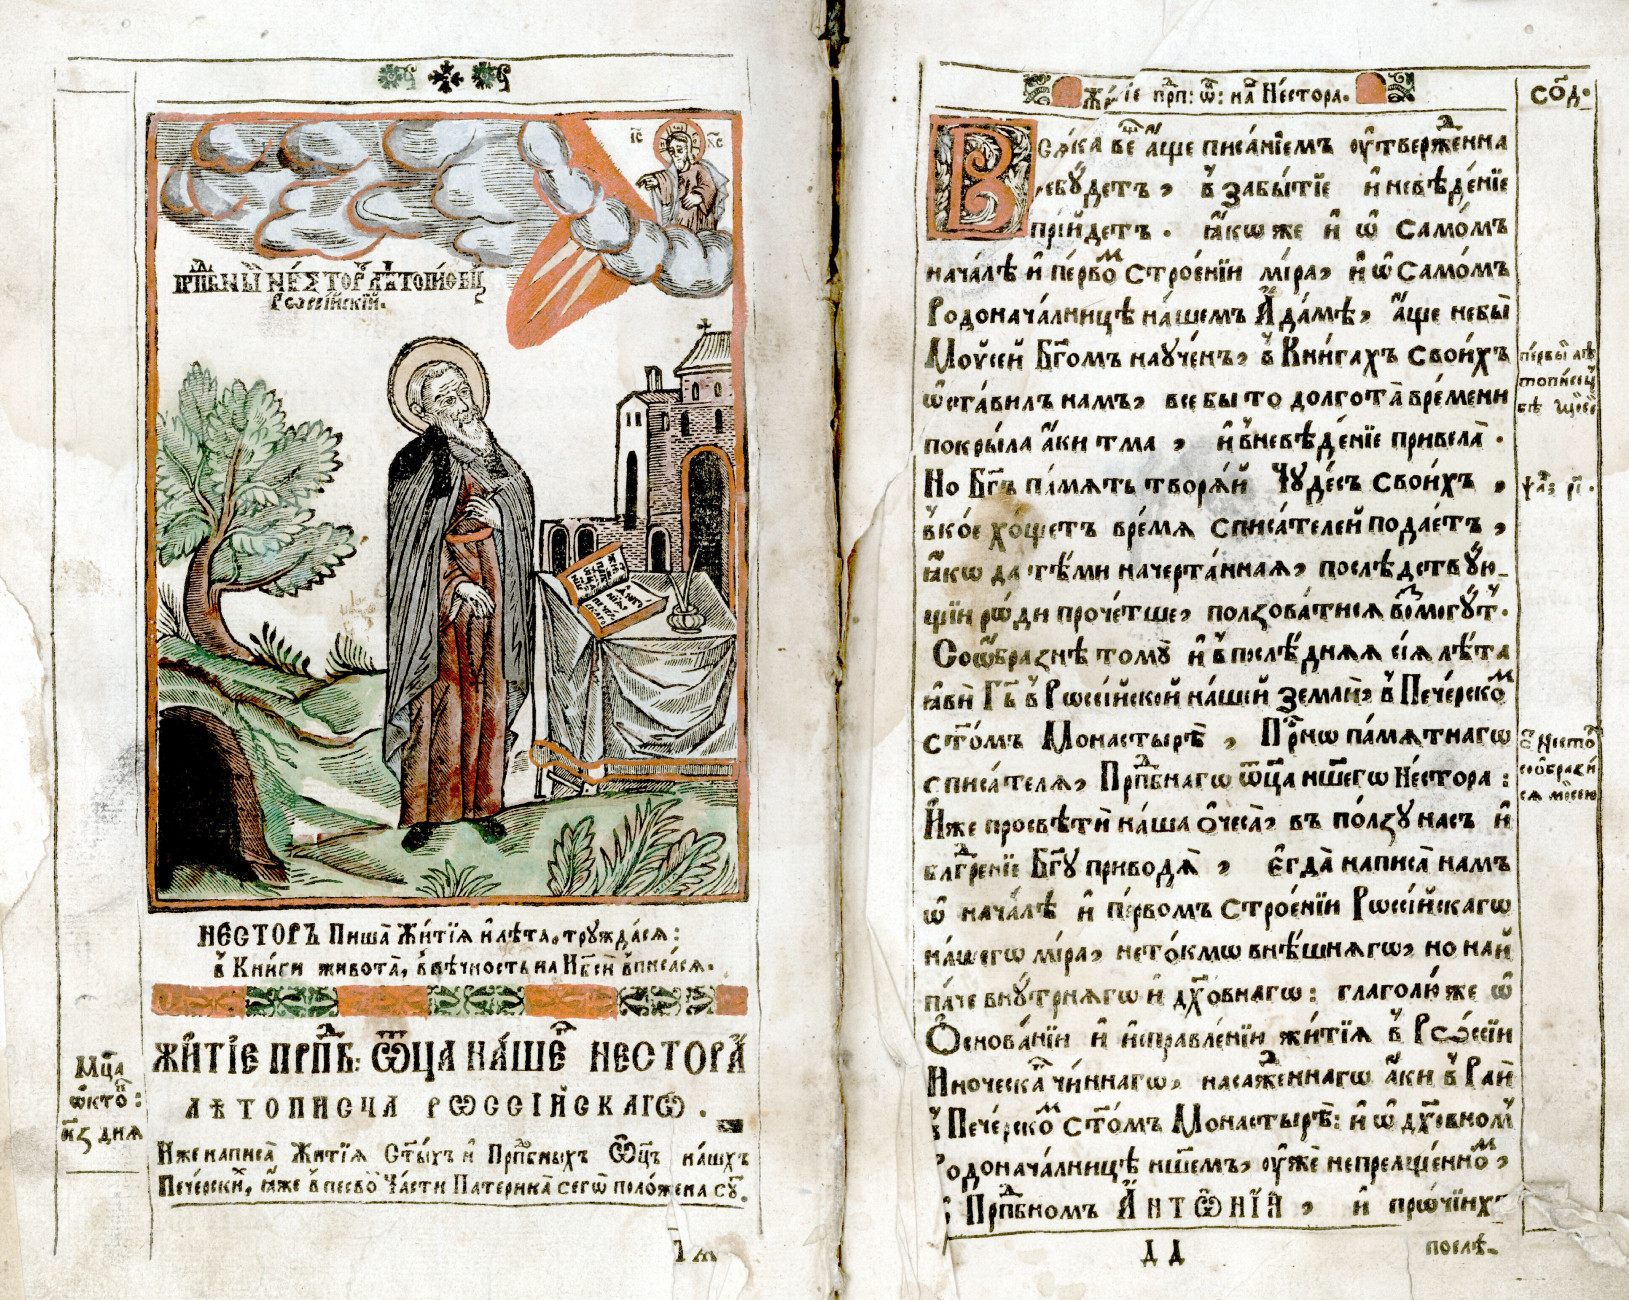 І҃С Х҃С
ПРПⷣБНЫЙ НЕ́СТОРЪ ЛѢТОПИСЕЦЪ
Рѡссі́йскїй.
НЕСТОРЪ Пиша̀ Жи́тїѧ и҆ лѣ́та, трꙋжда́сѧ:
в̾ Кни́ги живота̀, в̾ вѣ́чность на Нб҃сѝ в̾писа́сѧ.
ЖИ́ТІЕ ПРПⷣБ: Ѿ҃ЦА НА́ШЕⷢ НЕСТОРА
ЛѢТОПИСЦА РѠССІЙСКАГѠ.
Мц҃а
ѻ҆ктоⷨ:
к҃з днѧ
И́же написа̀ Жи́тїѧ Ст҃ы́хъ и҆ Прпⷣбныхъ Ѿц҃ъ на́шхъ
Пече́рскиⷯ, ꙗ҆́же в̾ пе́рвоⷨ Ча́сти Патерика̀ сегѡ̀ поло́жена сꙋ́ⷮ.
Жи́тїе прпⷣ: ѿ: на́ⷲ Не́стора.
Всѧ́ка вeⷳ а҆́ще писа́нїемъ ᲂу҆тверже́нна
не бꙋ́детъ, в̾ забы́тїе и҆ невѣ́дѣнїе
прїи́детъ. ꙗ҆́кѡ же и҆ ѡ҆ само́мъ
нача́лѣ и҆ пе́рвоⷨ строе́нїи мі́ра, и҆ ѡ҆ само́мъ
Родонача́лницѣ на́шемъ А҆да́мѣ, а҆́ще не бы̀
Мѡѷсе́й Бг҃омъ наꙋче́нъ, в̾ Кни́гахъ свои́хъ
ѡ҆ста́вилъ намъ, все бы то долгота̀ вре́мени
покры́ла а҆́ки тма, и҆ в̾ невѣ́дѣнїе привела̀.
Но Бг҃ъ па́мѧть творѧ́й Чꙋде́съ свои́хъ,
в̾ ко́е хо́щетъ вре́мѧ списа́телей подае́тъ,
ꙗ҆́кѡ да тѣ́ми начерта́ннаѧ, послѣ́дствꙋю-
щїи рѡ́ди проче́тше, полꙁова́тисѧ воⷥмо́гꙋтъ.
Соѡбра́ꙁнѣ томꙋ̀ и҆ в̾ послѣ́днѧѧ сїѧ̀ лѣ́та
ꙗ҆вѝ Гⷭ҇ь в̾ Рѡссі́йской на́шей землѝ, в̾ Пече́рскоⷨ
ст҃о́мъ Монастырѣ̀, Прⷭ҇нѡ па́мѧтнагѡ
списа́телѧ, Прпⷣбнагѡ ѿц҃а нш҃егѡ Не́стора:
И҆́же просвѣтѝ на́ша ѻ҆чеса̀, въ по́лꙁꙋ насъ и҆
благⷣре́нїе Бг҃ꙋ приводѧ̀, є҆гда̀ написа̀ намъ
ѡ҆ нача́лѣ и҆ пе́рвомъ строе́нїи Рѡссі́йскагѡ
на́шегѡ мі́ра, не то́кмѡ внѣ́шнѧгѡ, но на́й
па́че внꙋ́трнѧгѡ и҆ дх҃о́внагѡ: глаго́лю же ѡ҆
Ѻ҆снова́нїи и҆ и҆справле́нїи жи́тїѧ в̾ Рѡссі́и
И́ноческаⷢ чи́ннагѡ, насажде́ннагѡ а҆́ки в̾ Раѝ
в̾ Пече́рскоⷨ ст҃о́мъ Монастырѣ̀: и҆ ѡ҆ дх҃о́вномъ
Родонача́лницѣ нш҃емъ, ᲂу҆жѐ непрелще́нноⷨ,
Прпⷣбномъ А҆НТѠ́НІИ, и҆ прѡ́чїихъ
послѣ-
пе́рвый лѣ-
топи́сецъ
бѣ Мѡѷсе́й
ѱа҃л: р҃і.
Пр: Не́стоⷬ
соѡбраꙁи́
сѧ мѡѷсе́ю